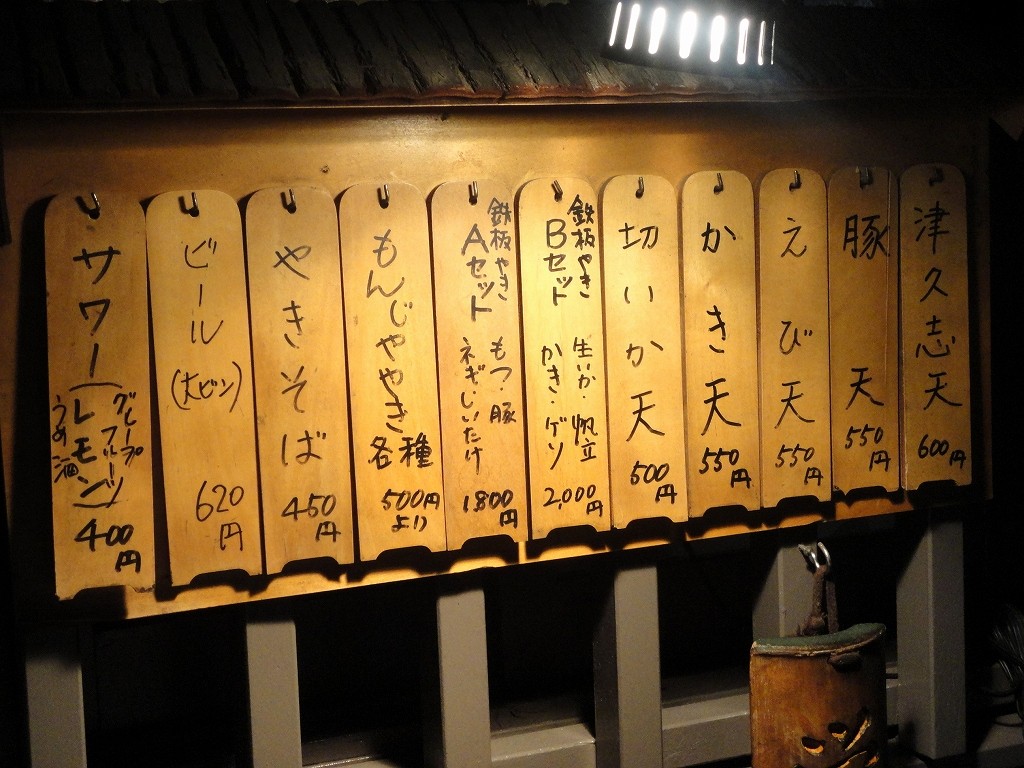 津久志天
600円
豚天
550円
えび天
550円
かき天
550円
切いか天
500円
鉄板やき
Bセット
生いか・帆立
かき・ゲソ
2,000円
鉄板やき
Aセット
もつ・豚
ネギ・しいたけ
1800円
もんじゃやき
各種
500円
より
やきそば
450円
ビール
(大ビン)
620円
サワー
(グレープフルーツ
レモン
うめ酒)
400円